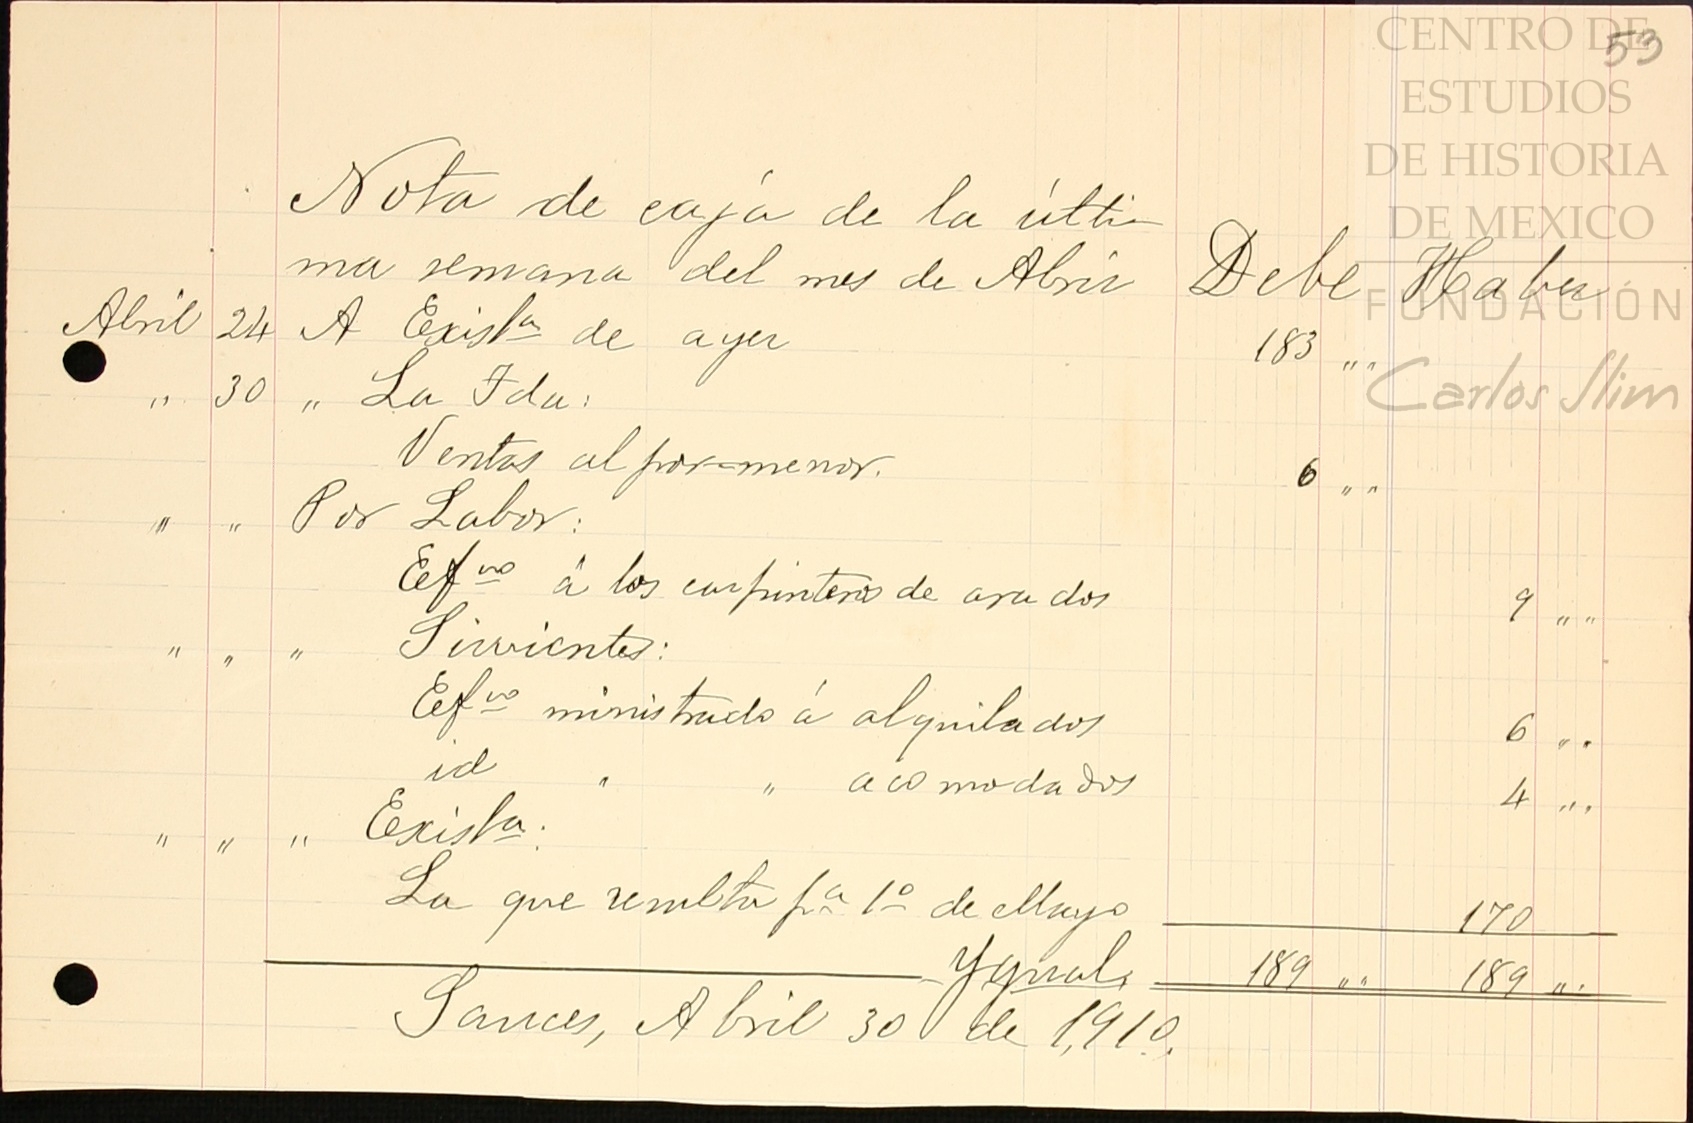 CENTRO DE
53
ESTUDIOS
DE HISTORIA
DE MEXICO
FUNDACIÓN
Carlos Slim
Nota de caja de la últi-
ma semana del mes de Abril Debe Haber
Abril 24 A Existª de ayer 183 " "
" 30 " La Ida:
Ventas al por=menor. 6 " "
" " Por Labor:
Eefvo á los carpinteros de arados 9 " "
" " " Sirvientes:
Eefvo ministrado á alquilados 6 " "
id " " acomodados 4 " "
" " " Existª:
La que resulta pª 1º de Mayo 170
Ygual. 189 " " 189 " "
Sauces, Abril 30 de 1,910.